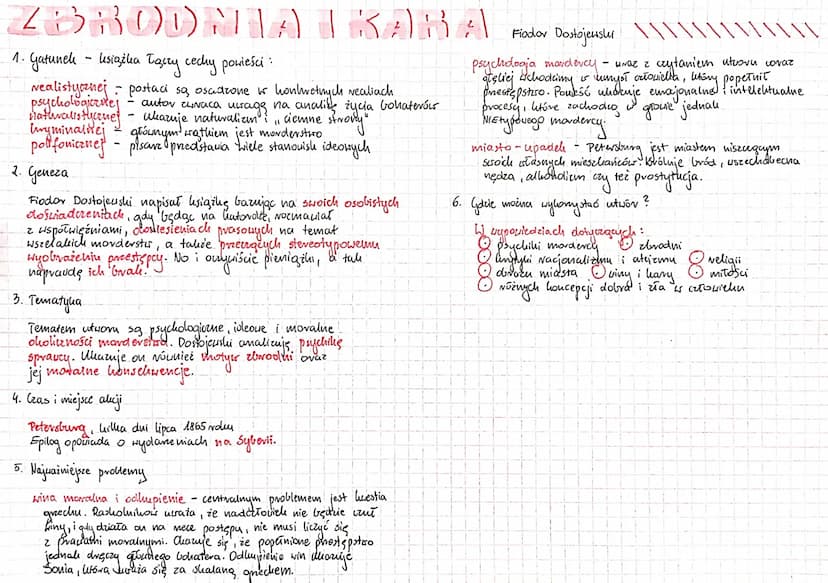 ZBRODNIA I KARA
Fiodor Dostojewski
1. Gatunek - książka łączy cechy powieści:
realistycznej - postaci są osadzone w konkretnych realiach
psychologicznej - autor zwraca uwagę na analizę życia bohaterów
naturalistycznej - ukazuje naturalizm i „ciemne strony"
kryminalnej - głównym wątkiem jest morderstwo
polifonicznej - pisarz przedstawia wiele stanowisk ideowych
2. Geneza
Fiodor Dostojewski napisał książkę bazując na swoich osobistych
doświadczeniach, gdy będąc na katordze, rozmawiał
z współwięźniami, doniesieniach prasowych na temat
wszelakich morderstw, a także przeczących stereotypowemu
wyobrażeniu przestępcy. No i oczywiście pieniążki, a tak
naprawdę ich brak.
3. Tematyka
Tematem utworu są psychologiczne, ideowe i moralne
okoliczności morderstwa. Dostojewski analizuje psychikę
sprawcy. Ukazuje on również motyw zbrodni oraz
jej moralne konsekwencje.
4. Czas i miejsce akcji
Petersburg, kilka dni lipca 1865 roku
Epilog opowiada o wydarzeniach na Syberii.
5. Najważniejsze problemy
wina moralna i odkupienie - centralnym problemem jest kwestia
grzechu. Raskolnikow uważa, że nadczłowiek nie będzie czuł
winy, i gdy działa on na rzecz postępu, nie musi liczyć się
z prawami moralnymi. Okazuje się, że popełnione przestępstwo
jednak dręczy głównego bohatera. Odkupienie win ukazuje
Sonia, która uważa się za skalaną grzechem.
psychologia mordercy - wraz z czytaniem utworu coraz
głębiej wchodzimy w umysł człowieka, który popełnił
przestępstwo. Powieść ukazuje emocjonalne i intelektualne
procesy, które zachodzą w głowie jednak
NIEtypowego mordercy.
miasto - upadek - Petersburg jest miastem niszczącym
swoich własnych mieszkańców. Króluje bród, wszechobecna
nędza, alkoholizm czy też prostytucja.
6. Gdzie można wykorzystać utwór?
W wypowiedziach dotyczących:
psychiki mordercy zbrodni
krytyki racjonalizmu i ateizmu religii
obrazu miasta winy i kary miłości
różnych koncepcji dobra i zła w człowieku